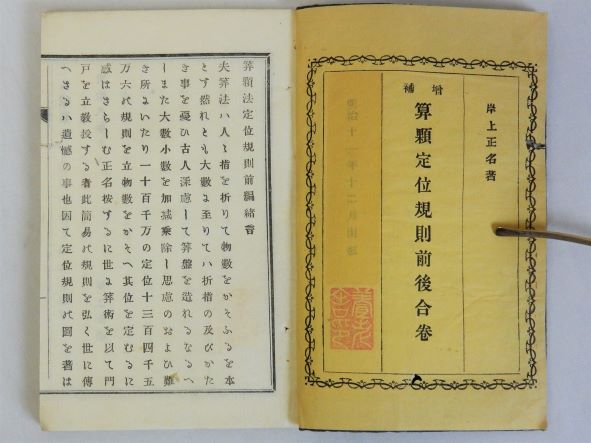 岸上正名著
増補
算顆定位規則前後合卷
明治十一年十二月出版
算顆法定位規則前編緒言
夫算法ハ人々指を折りて物数をかそふるを本
とす然れとも大数に至りてハ折指の及びかた
き事を憂ひ古人深慮して算盤を造れるなるへ
しまた大数小数を加減乗除し思慮のおよひ難
き所にいたり一十百千万の定位十三百四千五
万六の規則を立物数をかそへ其位を定むるに
感はさらしむ正名按するに世に算術を以て門
戸を立教授する者此簡易の規則を弘く世に傳
へさるハ遺憾の事也因て定位規則の圖を著は